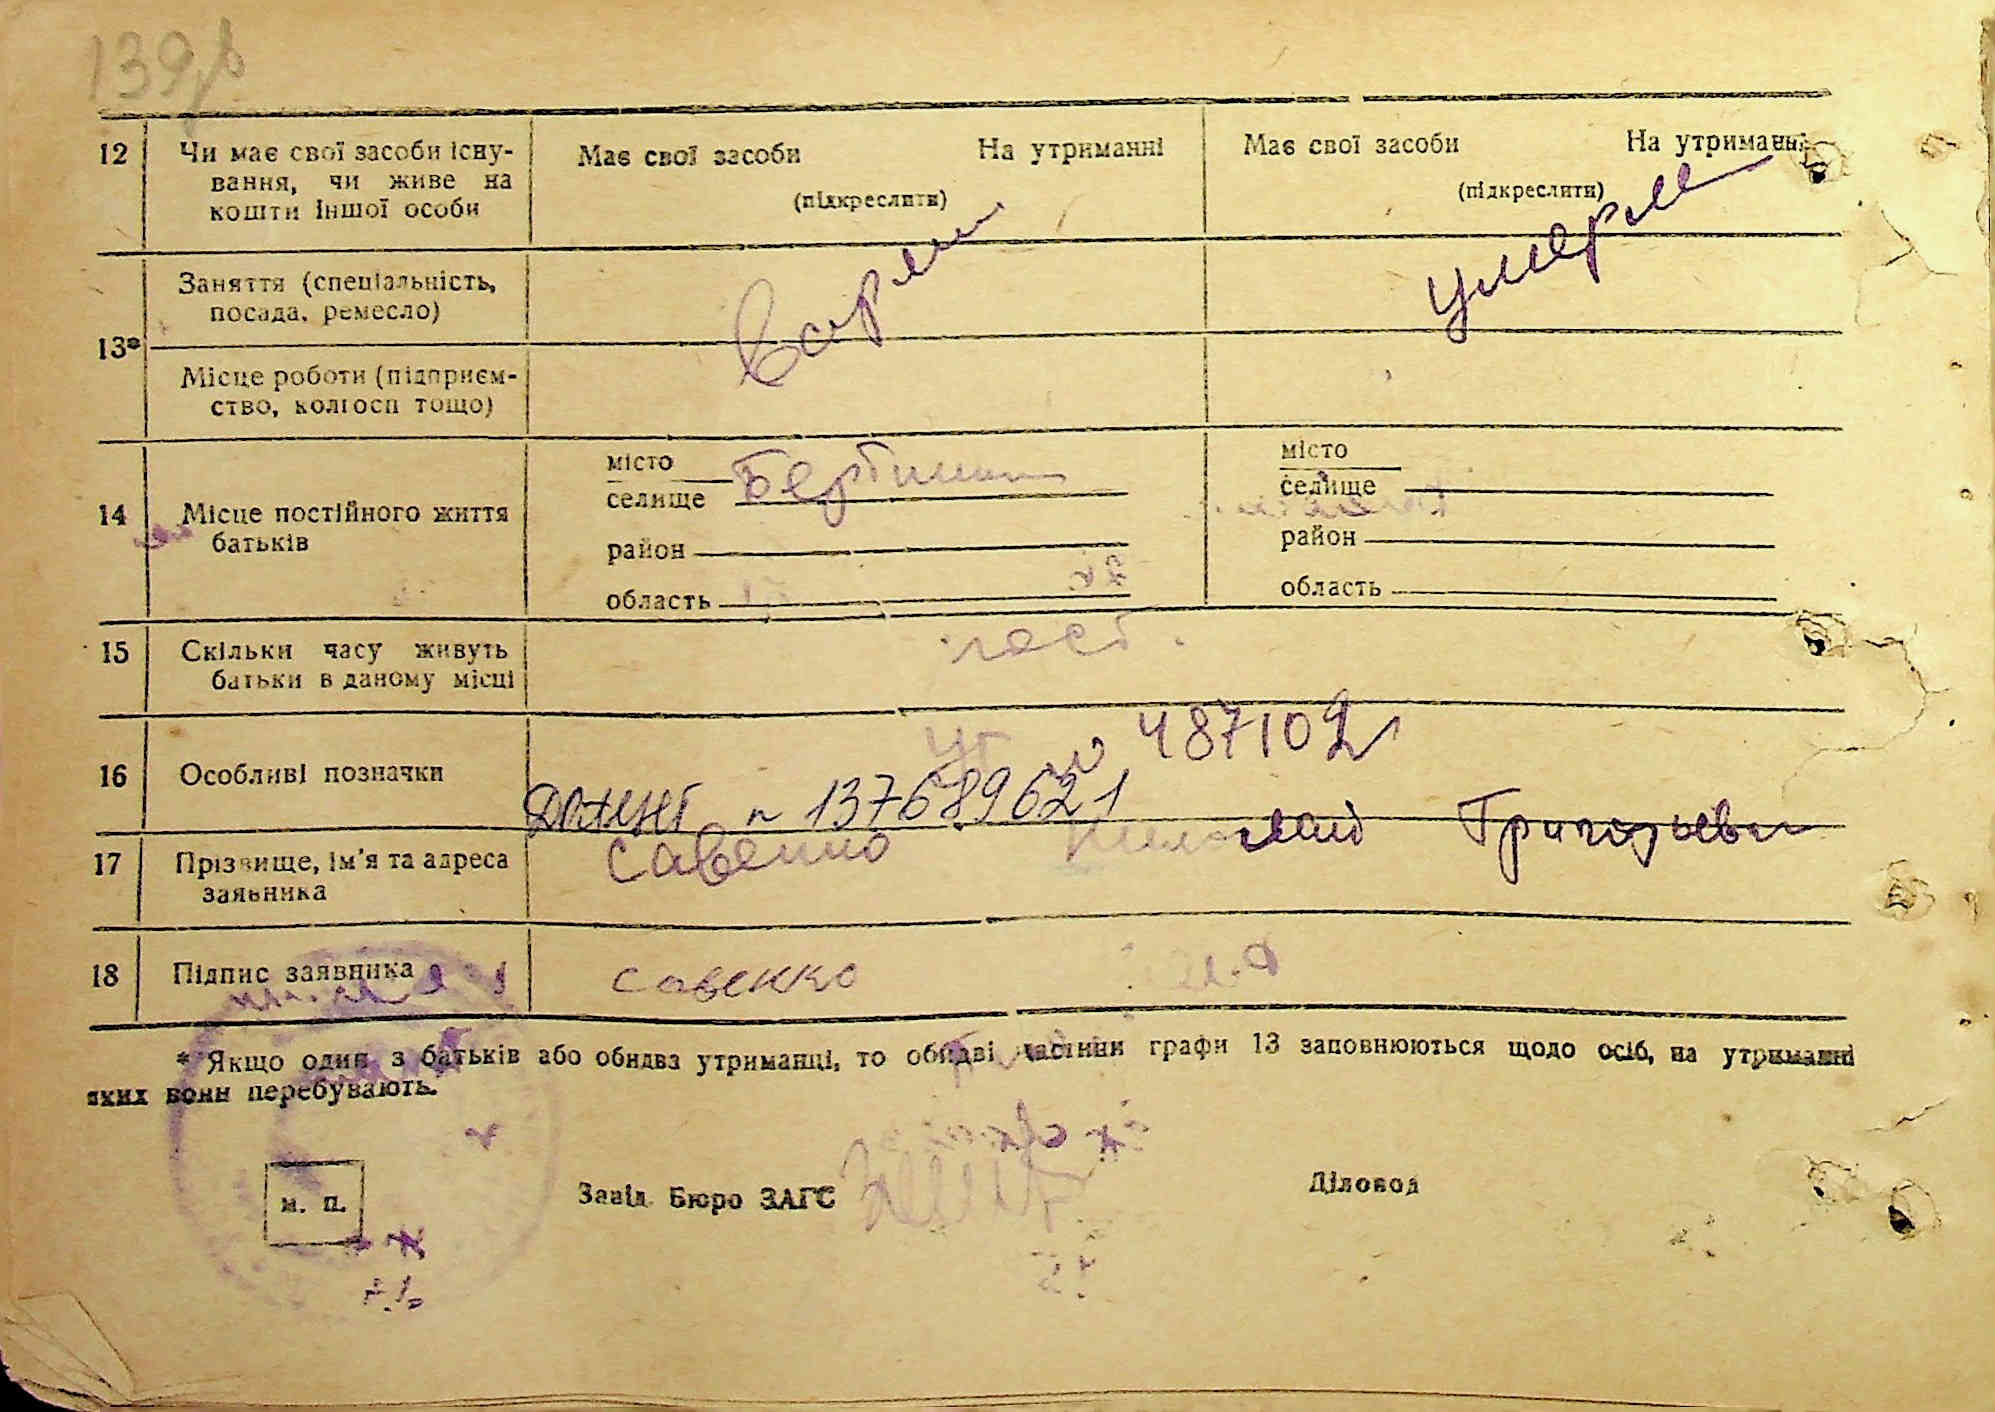 139
12 Чи має свої засоби існу-
вання, чи живе на
кошти іншої особи
Має свої засоби На утриманні
(підкреслити)
Має свої засоби На утриманні
(підкреслити)
умерли
13* Заняття (спеціальність,
посада, ремесло)
Місце роботи (підприєм-
ство, колгосп тощо)
14 Місце постійного життя
батьків
місто
селище
район
область
місто
селище
район
область
15 Скільки часу живуть
батьки в даному місці
пост.
16 Особливі позначки
487102
n 137689621
17 Прізвище, ім'я та адреса
заявника
Савенко Григорьевич
18 Підпис заявника
Савенко
* Якщо один з батьків або обидва утриманці, то обидві частини графи 13 заповнюються щодо осіб, на утриманні
яких вони перебувають.
м. п.
Завід. Бюро ЗАГС
Діловод